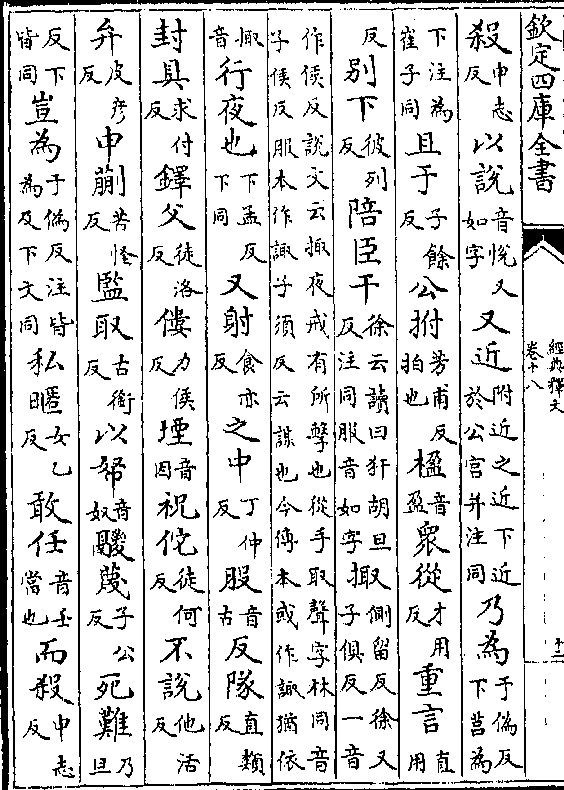 欽定四庫全書
經典釋文
卷十八
十二
殺申志反以說音悅又如字又近附近之近下近於公宮并注同乃為于偽反下莒為
下注為崔子同且于子餘反公拊芳甫反拍也楹音盈衆從才用反重言直用
反別下彼列反陪臣干徐云讀曰犴胡旦反注同服音如字掫側留反徐又子俱反一音
作侯反說文云掫夜戒有所擊也從手取聲字林同音子侯反服本作諏子須反云謀也今傳本或作諏猶依
掫音行夜也下孟反下同又射食亦反之中丁仲反股音古反隊直類反
封具求付反鐸父徒洛反僂力侯反堙音因祝佗徒何反不說他活反
弁皮彥反申蒯苦怪反監取古銜反以帑音奴鬷蔑子公反死難乃旦
反下皆同豈為于偽反注皆為及下文同私暱女乙反敢任音壬當也而殺申志反